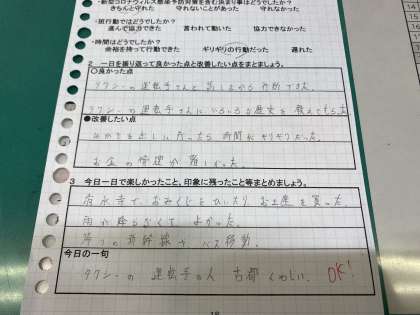 ・新型コロナウイルス感染予防対策を含む決まり事はどうでしたか?
きちんと守れた　守れないことがあった　守れなかった
・班行動ではどうでしたか?
進んで協力できた　言われて動いた　協力できなかった
・時間はどうでしたか?
余裕を持って行動できた　ギリギリの行動だった　遅れた
2　一日を振り返って良かった点と改善したい点をまとめましょう。
○良かった点
タクシーの運転手さんと話しながら行動できた
タクシーの運転手さんにいろいろな歴史を教えてもらった
●改善したい点
時間がギリギリだった
お金の管理が難しかった。
3　今日一日で楽しかったこと、印象に残ったこと等まとめましょう。
清水寺で、おみくじをひいたり、お土産を買った
雨が降らなくてよかった。
等の新幹線やバス移動。
今日の一句
タクシーの　運転手の人　古都くわしい
OK!